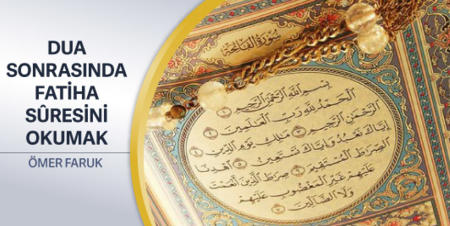 DUA
SONRASINDA
FATİHA
SÛRESİNİ
OKUMAK
ÖMER FARUK
سورة الفاتحة
بِسْمِ اللَّهِ الرَّحْمَٰنِ الرَّحِيمِ
الْحَمْدُ لِلَّهِ رَبِّ الْعَالَمِينَ
الرَّحْمَٰنِ الرَّحِيمِ مَلِكِ يَوْمِ الدِّينِ
إِيَّاكَ نَعْبُدُ وَإِيَّاكَ نَسْتَعِينُ اهْدِنَا
الصِّرَاطَ الْمُسْتَقِيمَ صِرَاطَ الَّذِينَ أَنْعَمْتَ
عَلَيْهِمْ غَيْرِ الْمَغْضُوبِ عَلَيْهِمْ
وَلَا الضَّالِّينَ